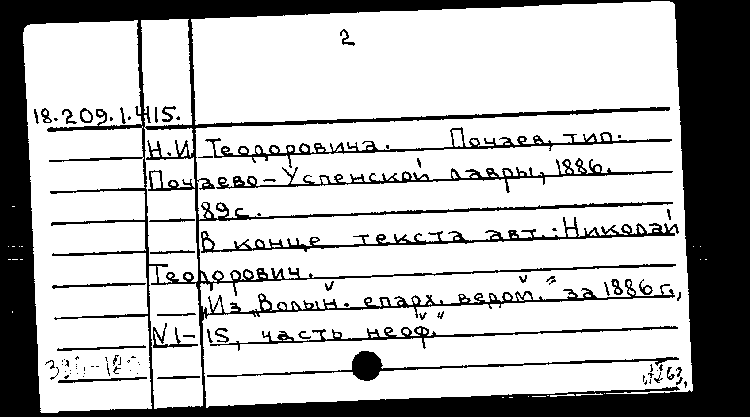 2
18.209.1.415.
Н.И. Теодоровича. Почаев, тип.
Почаево-Успенской лавры, 1886.
89 с.
В конце текста авт.: Николай
Теодорович.
"Из „Волын. епарх. ведом." за 1886 г.,
№ 1-15, часть неоф."